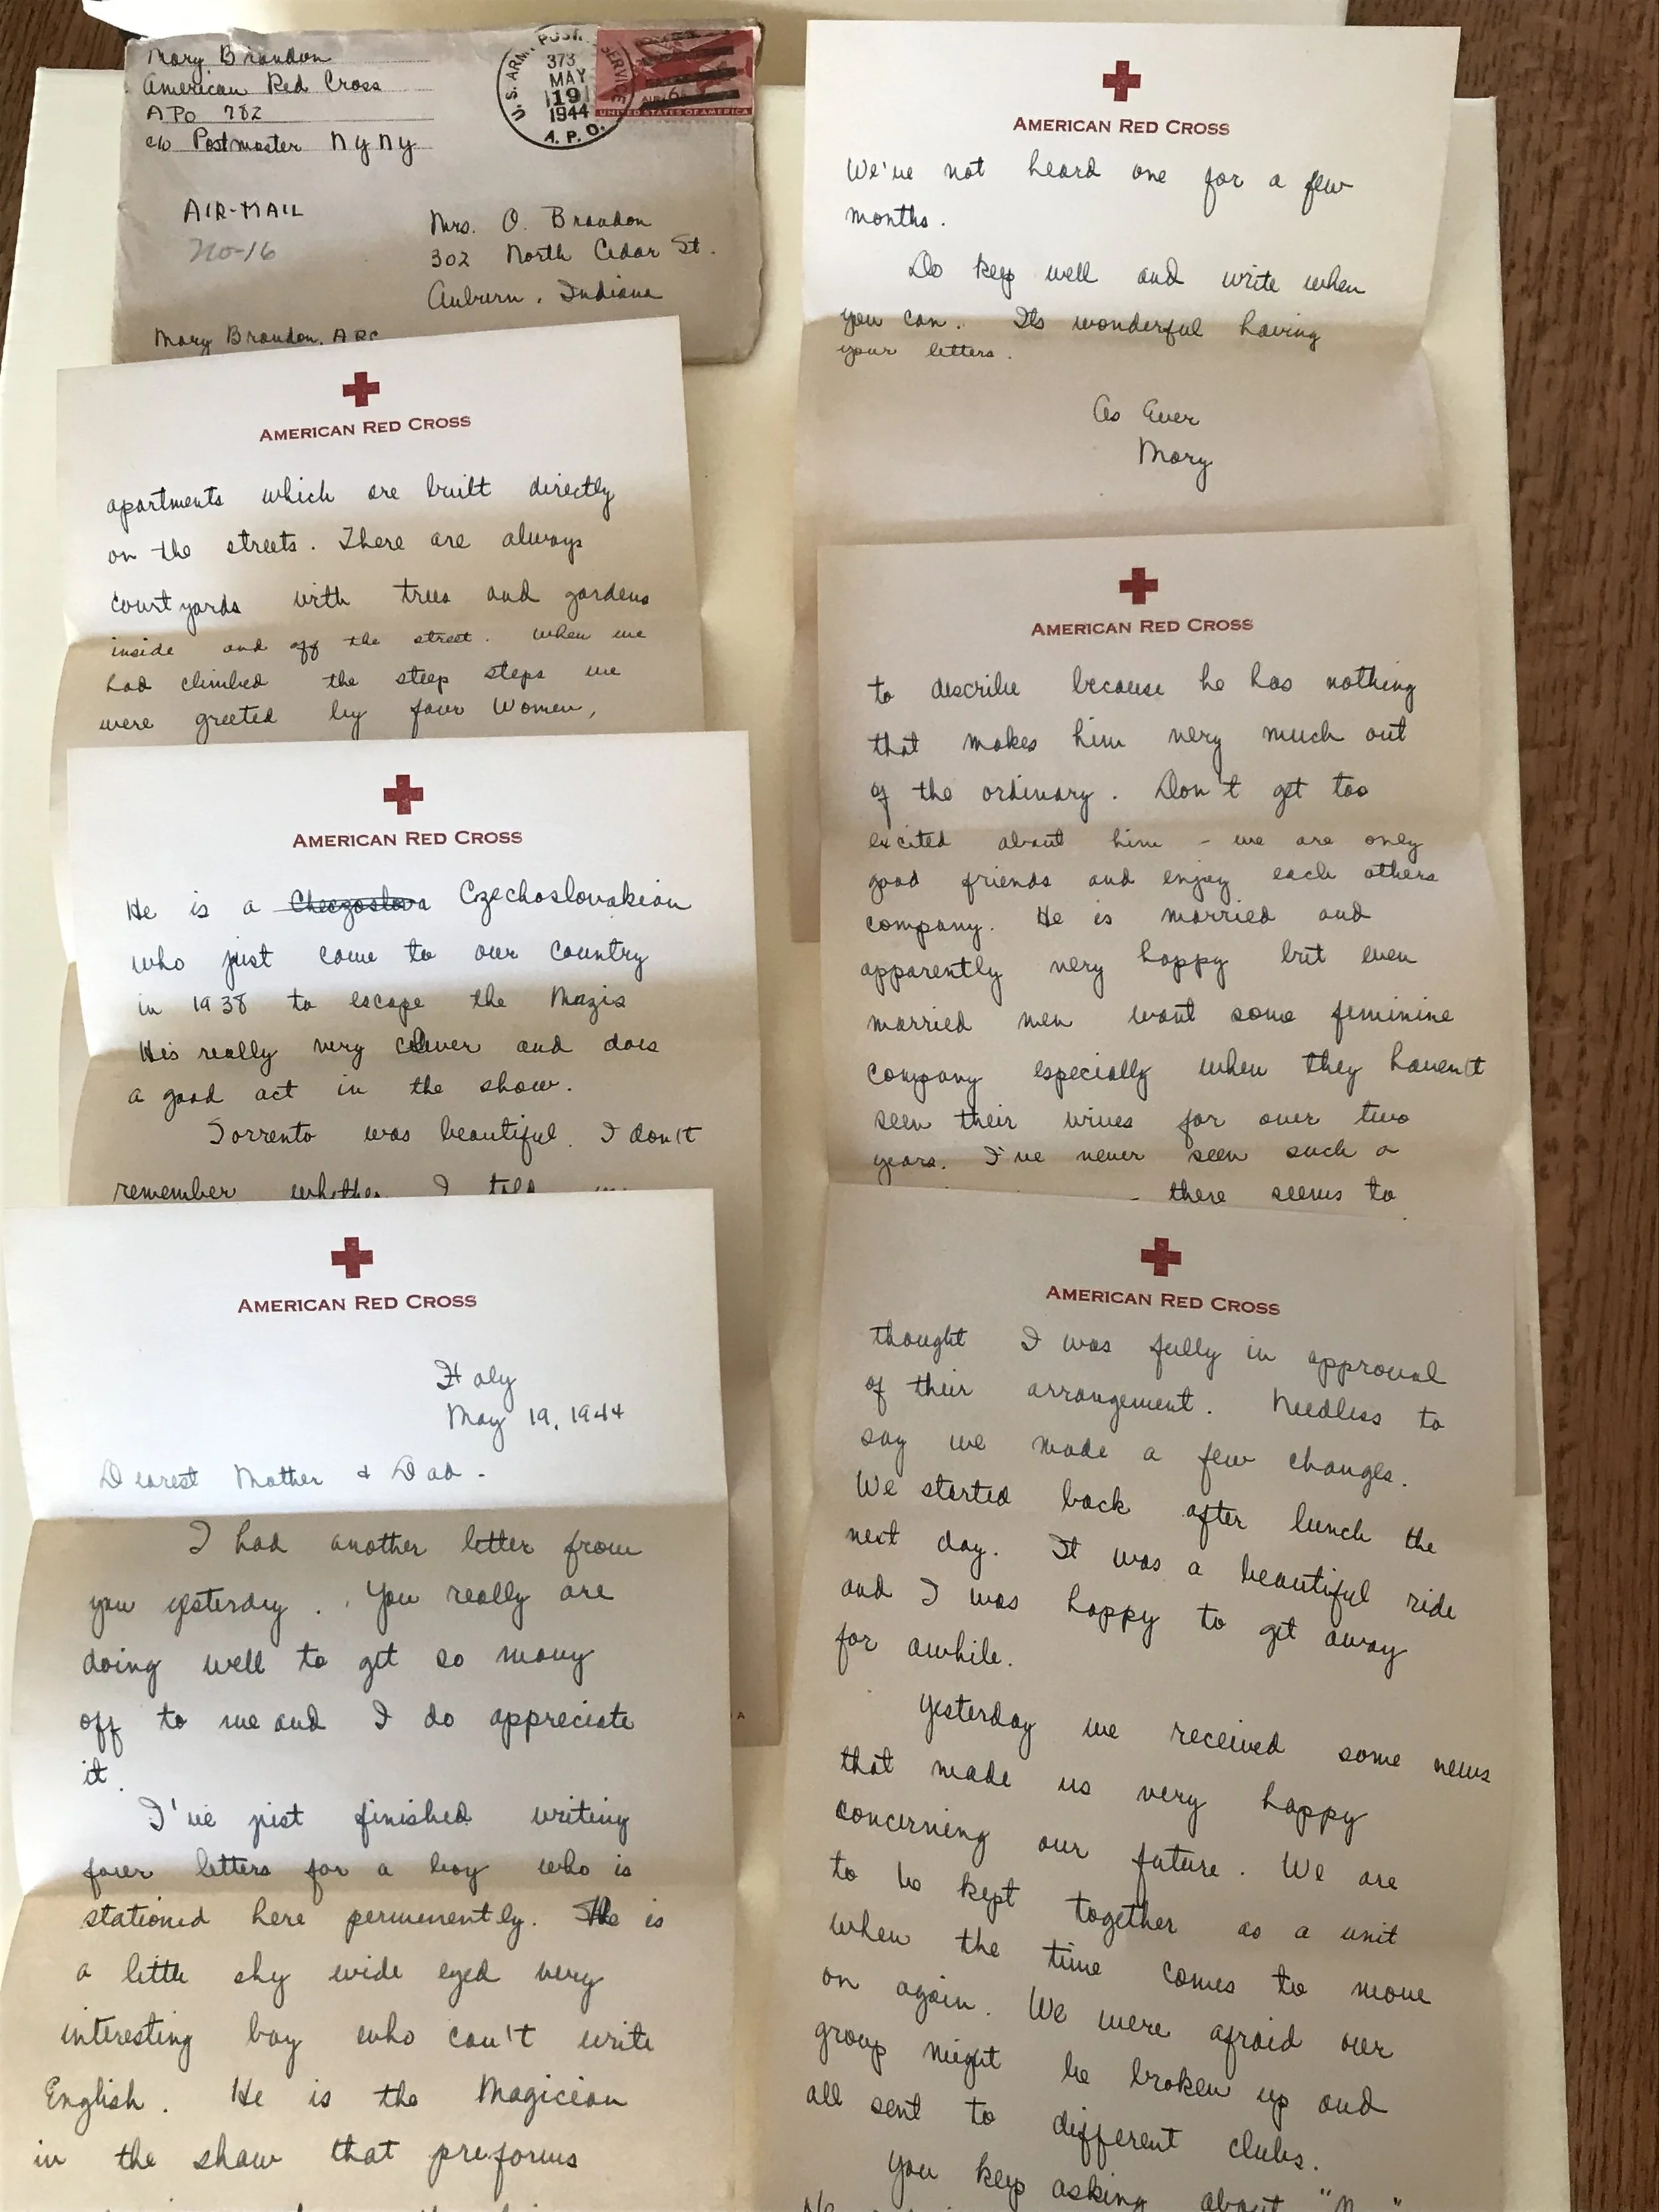 Mary Brandon
American Red Cross
APO 782
c/o Postmaster N Y N Y
U.S. ARMY POSTAL SERVICE
373
MAY
19
1944
A.P.O.
AIR 6¢
UNITED STATES OF AMERICA
AIR-MAIL
No-16
Mrs. O. Brandon
302 North Cedar St.
Auburn, Indiana
Mary Brandon, ARC
AMERICAN RED CROSS
apartments which are built directly
on the streets. There are always
courtyards with trees and gardens
inside and off the street. When we
had climbed the steep steps we
were greeted by four women,
AMERICAN RED CROSS
He is a Checzoslova Czechoslovakian
who just came to our country
in 1938 to escape the Nazis
His really very clever and does
a good act in the show.
Sorrento was beautiful. I don't
remember whether I told
AMERICAN RED CROSS
Italy
May 19, 1944
Dearest Mother & Dad -
I had another letter from
you yesterday. You really are
doing well to get so many
off to me and I do appreciate
it.
I've just finished writing
four letters for a boy who is
stationed here permenently. He is
a little shy wide eyed very
interesting boy who can't write
English. He is the Magician
in the show that preforms
AMERICAN RED CROSS
We've not heard one for a few
months.
Do keep well and write when
you can. Its wonderful having
your letters.
As Ever
Mary
AMERICAN RED CROSS
to describe because he has nothing
that makes him very much out
of the ordinary. Don't get too
excited about him - we are only
good friends and enjoy each others
company. He is married and
apparently very happy but even
married men want some feminine
company especially when they haven't
seen their wives for over two
years. I've never seen such a
there seems to
AMERICAN RED CROSS
thought I was fully in approval
of their arrangement. Needless to
say we made a few changes.
We started back after lunch the
next day. It was a beautiful ride
and I was happy to get away
for awhile.
Yesterday we received some news
that made us very happy
concerning our future. We are
to be kept together as a unit
when the time comes to move
on again. We were afraid our
group might be broken up and
all sent to different clubs.
You keep asking about